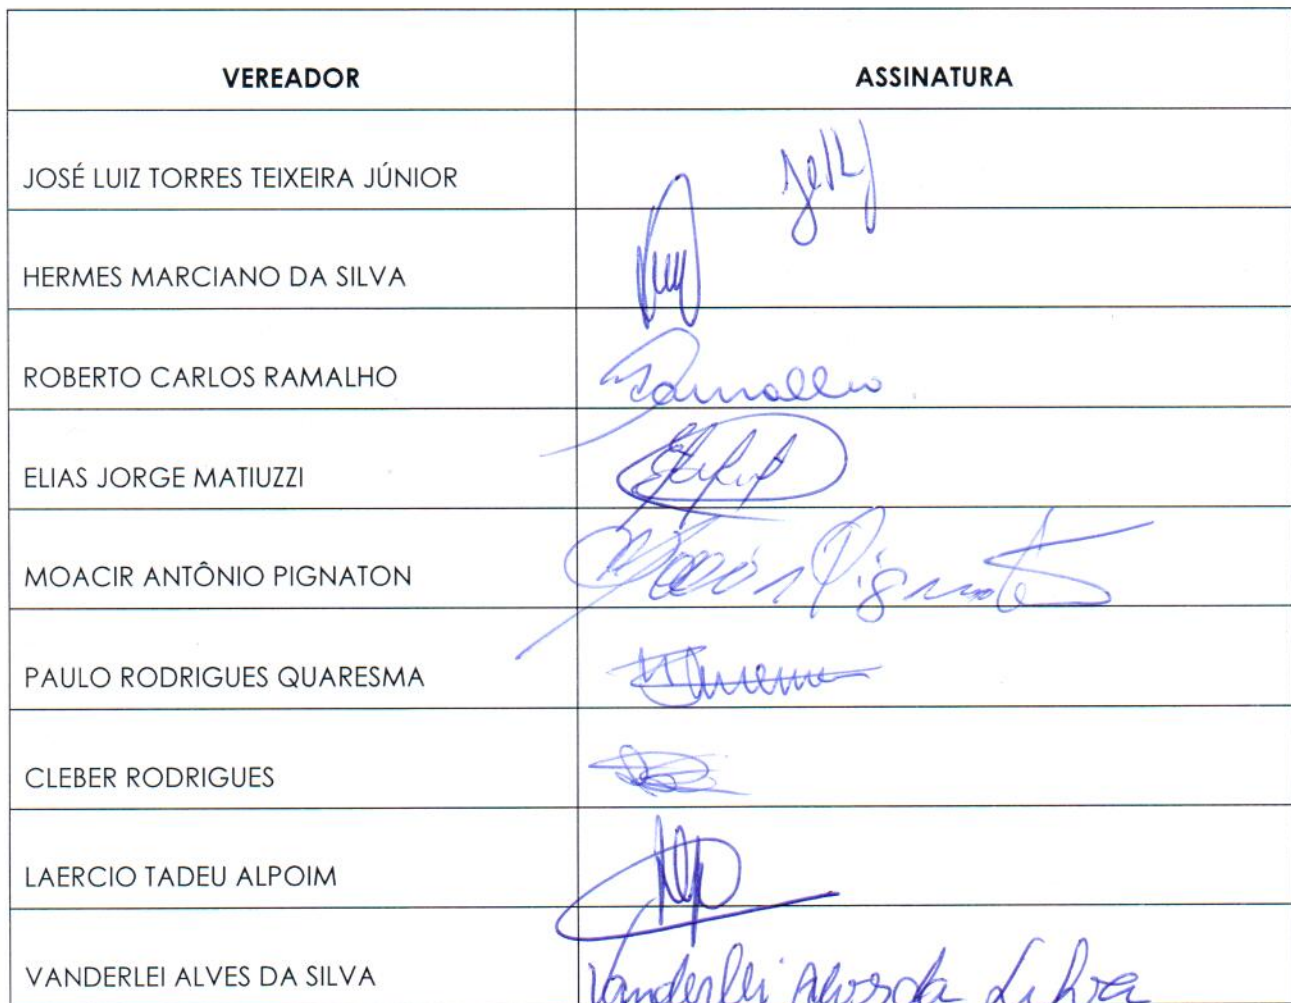 VEREADOR ASSINATURA
JOSÉ LUIZ TORRES TEIXEIRA JÚNIOR
HERMES MARCIANO DA SILVA
ROBERTO CARLOS RAMALHO Ramalho
ELIAS JORGE MATIUZZI
MOACIR ANTÔNIO PIGNATON Moacir Pignaton
PAULO RODRIGUES QUARESMA
CLEBER RODRIGUES
LAERCIO TADEU ALPOIM
VANDERLEI ALVES DA SILVA Vanderlei Alves da Silva